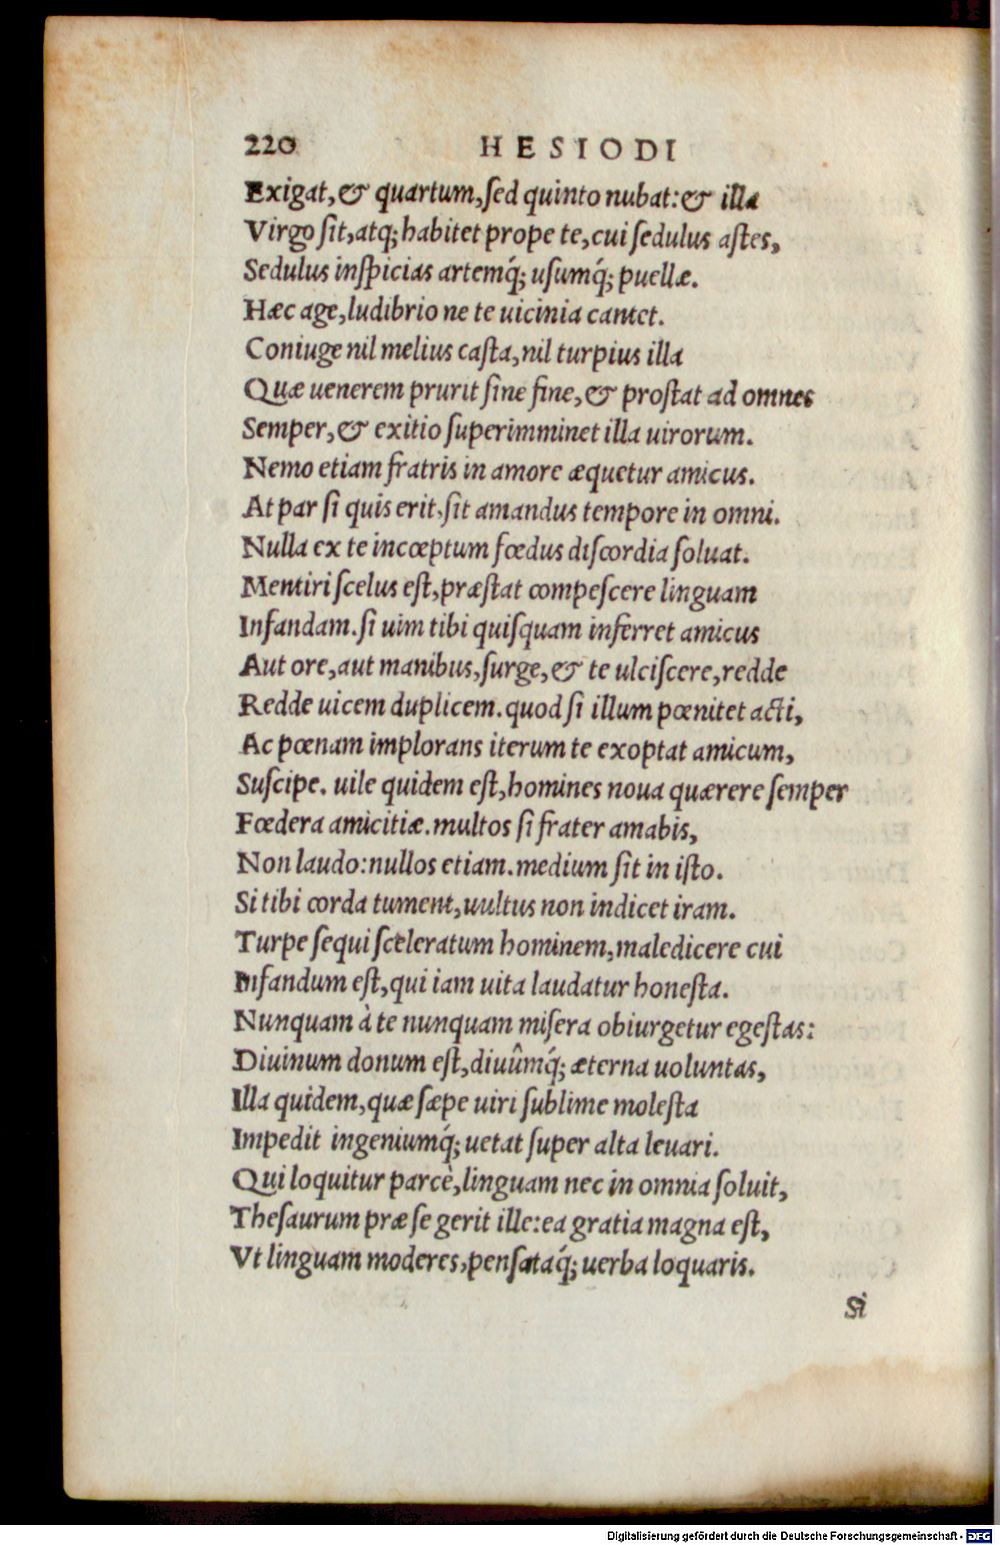 220 HESIODI
Exigat,& quartum,ſed quinto nubat:& illa
Virgo ſit,atq; habitet prope te,cui ſedulus aſtes,
Sedulus inſpicias artemq́; uſumq́; puellæ.
Hæc age,ludibrio ne te uicinia cantet.
Coniuge nil melius caſta,nil turpius illa
Quæ uenerem prurit ſine fine,& proſtat ad omnes
Semper,& exitio ſuperimminet illa uirorum.
Nemo etiam fratris in amore æquetur amicus.
At par ſi quis erit,ſit amandus tempore in omni.
Nulla ex te incœptum fœdus diſcordia ſoluat.
Mentiri ſcelus eſt,præſtat compeſcere linguam
Infandam.ſi uim tibi quiſquam inferret amicus
Aut ore,aut manibus,ſurge,& te ulciſcere,redde
Redde uicem duplicem.quod ſi illum pœnitet acti,
Ac pœnam implorans iterum te exoptat amicum,
Suſcipe. uile quidem eſt,homines noua quærere ſemper
Fœdera amicitiæ.multos ſi frater amabis,
Non laudo:nullos etiam.medium ſit in iſto.
Si tibi corda tument,uultus non indicet iram.
Turpe ſequi ſceleratum hominem,maledicere cui
Infandum eſt,qui iam uita laudatur honeſta.
Nunquam à te nunquam miſera obiurgetur egeſtas:
Diuinum donum eſt,diuûmq́; æterna uoluntas,
Illa quidem,quæ ſæpe uiri ſublime moleſta
Impedit ingeniumq́; uetat ſuper alta leuari.
Qui loquitur parcè,linguam nec in omnia ſoluit,
Theſaurum præ ſe gerit ille:ea gratia magna eſt,
Vt linguam moderes,penſataq́; uerba loquaris.
Si
Digitalisierung gefördert durch die Deutsche Forschungsgemeinschaft - DFG